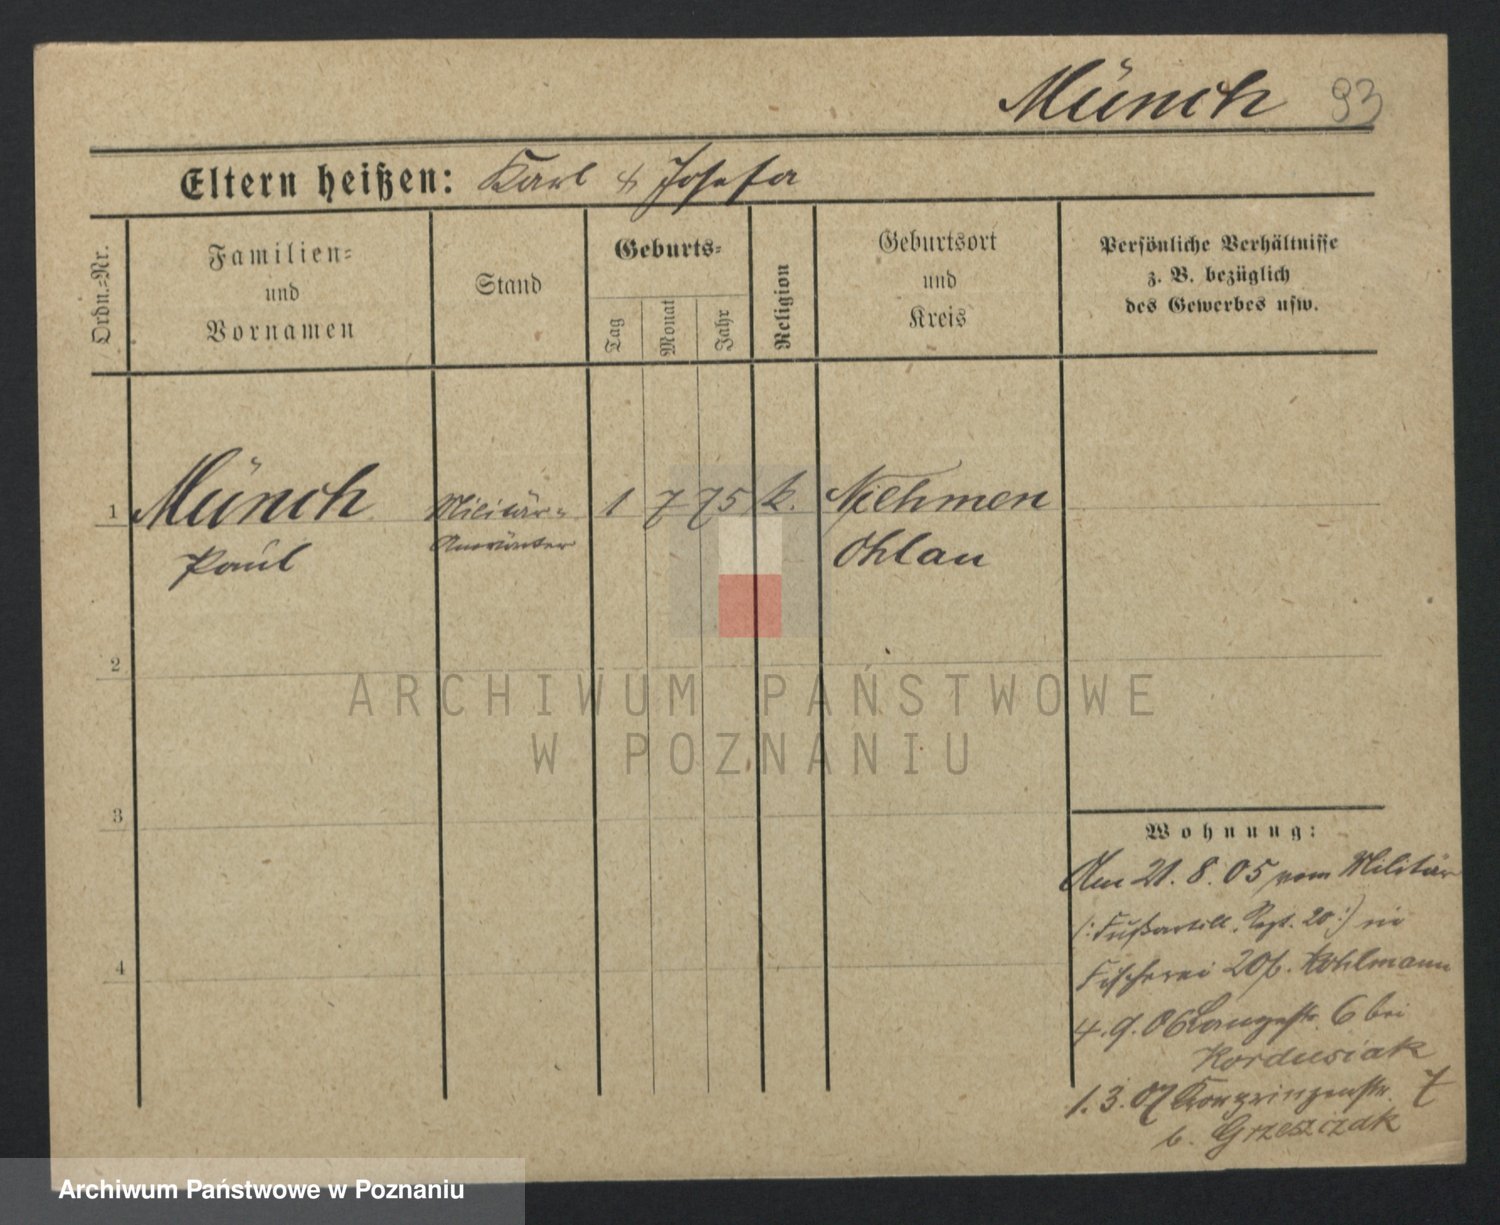 Münch 93
Eltern heißen: Karl & Josefa
Ordn.=Nr.
Familien=
und
Vornamen
Stand
Geburts=
Tag
Monat
Jahr
Religion
Geburtsort
und
Kreis
Persönliche Verhältnisse
z. B. bezüglich
des Gewerbes usw.
1 Münch Militär= 1 7 75 k. Niehmen
Paul Anwärter Ohlau
2
3
4
Wohnung:
Am 21. 8. 05 vom Militär
(: Fußartill. Regt. 20 :) in
Fischerei 20 b. Kohlmann
4. 9. 06 Langestr. 6 bei
Kordusiak
1. 3. 07 Kronprinzenstr. 7
b. Grzesiczak
ARCHIWUM PAŃSTWOWE
W POZNANIU
Archiwum Państwowe w Poznaniu